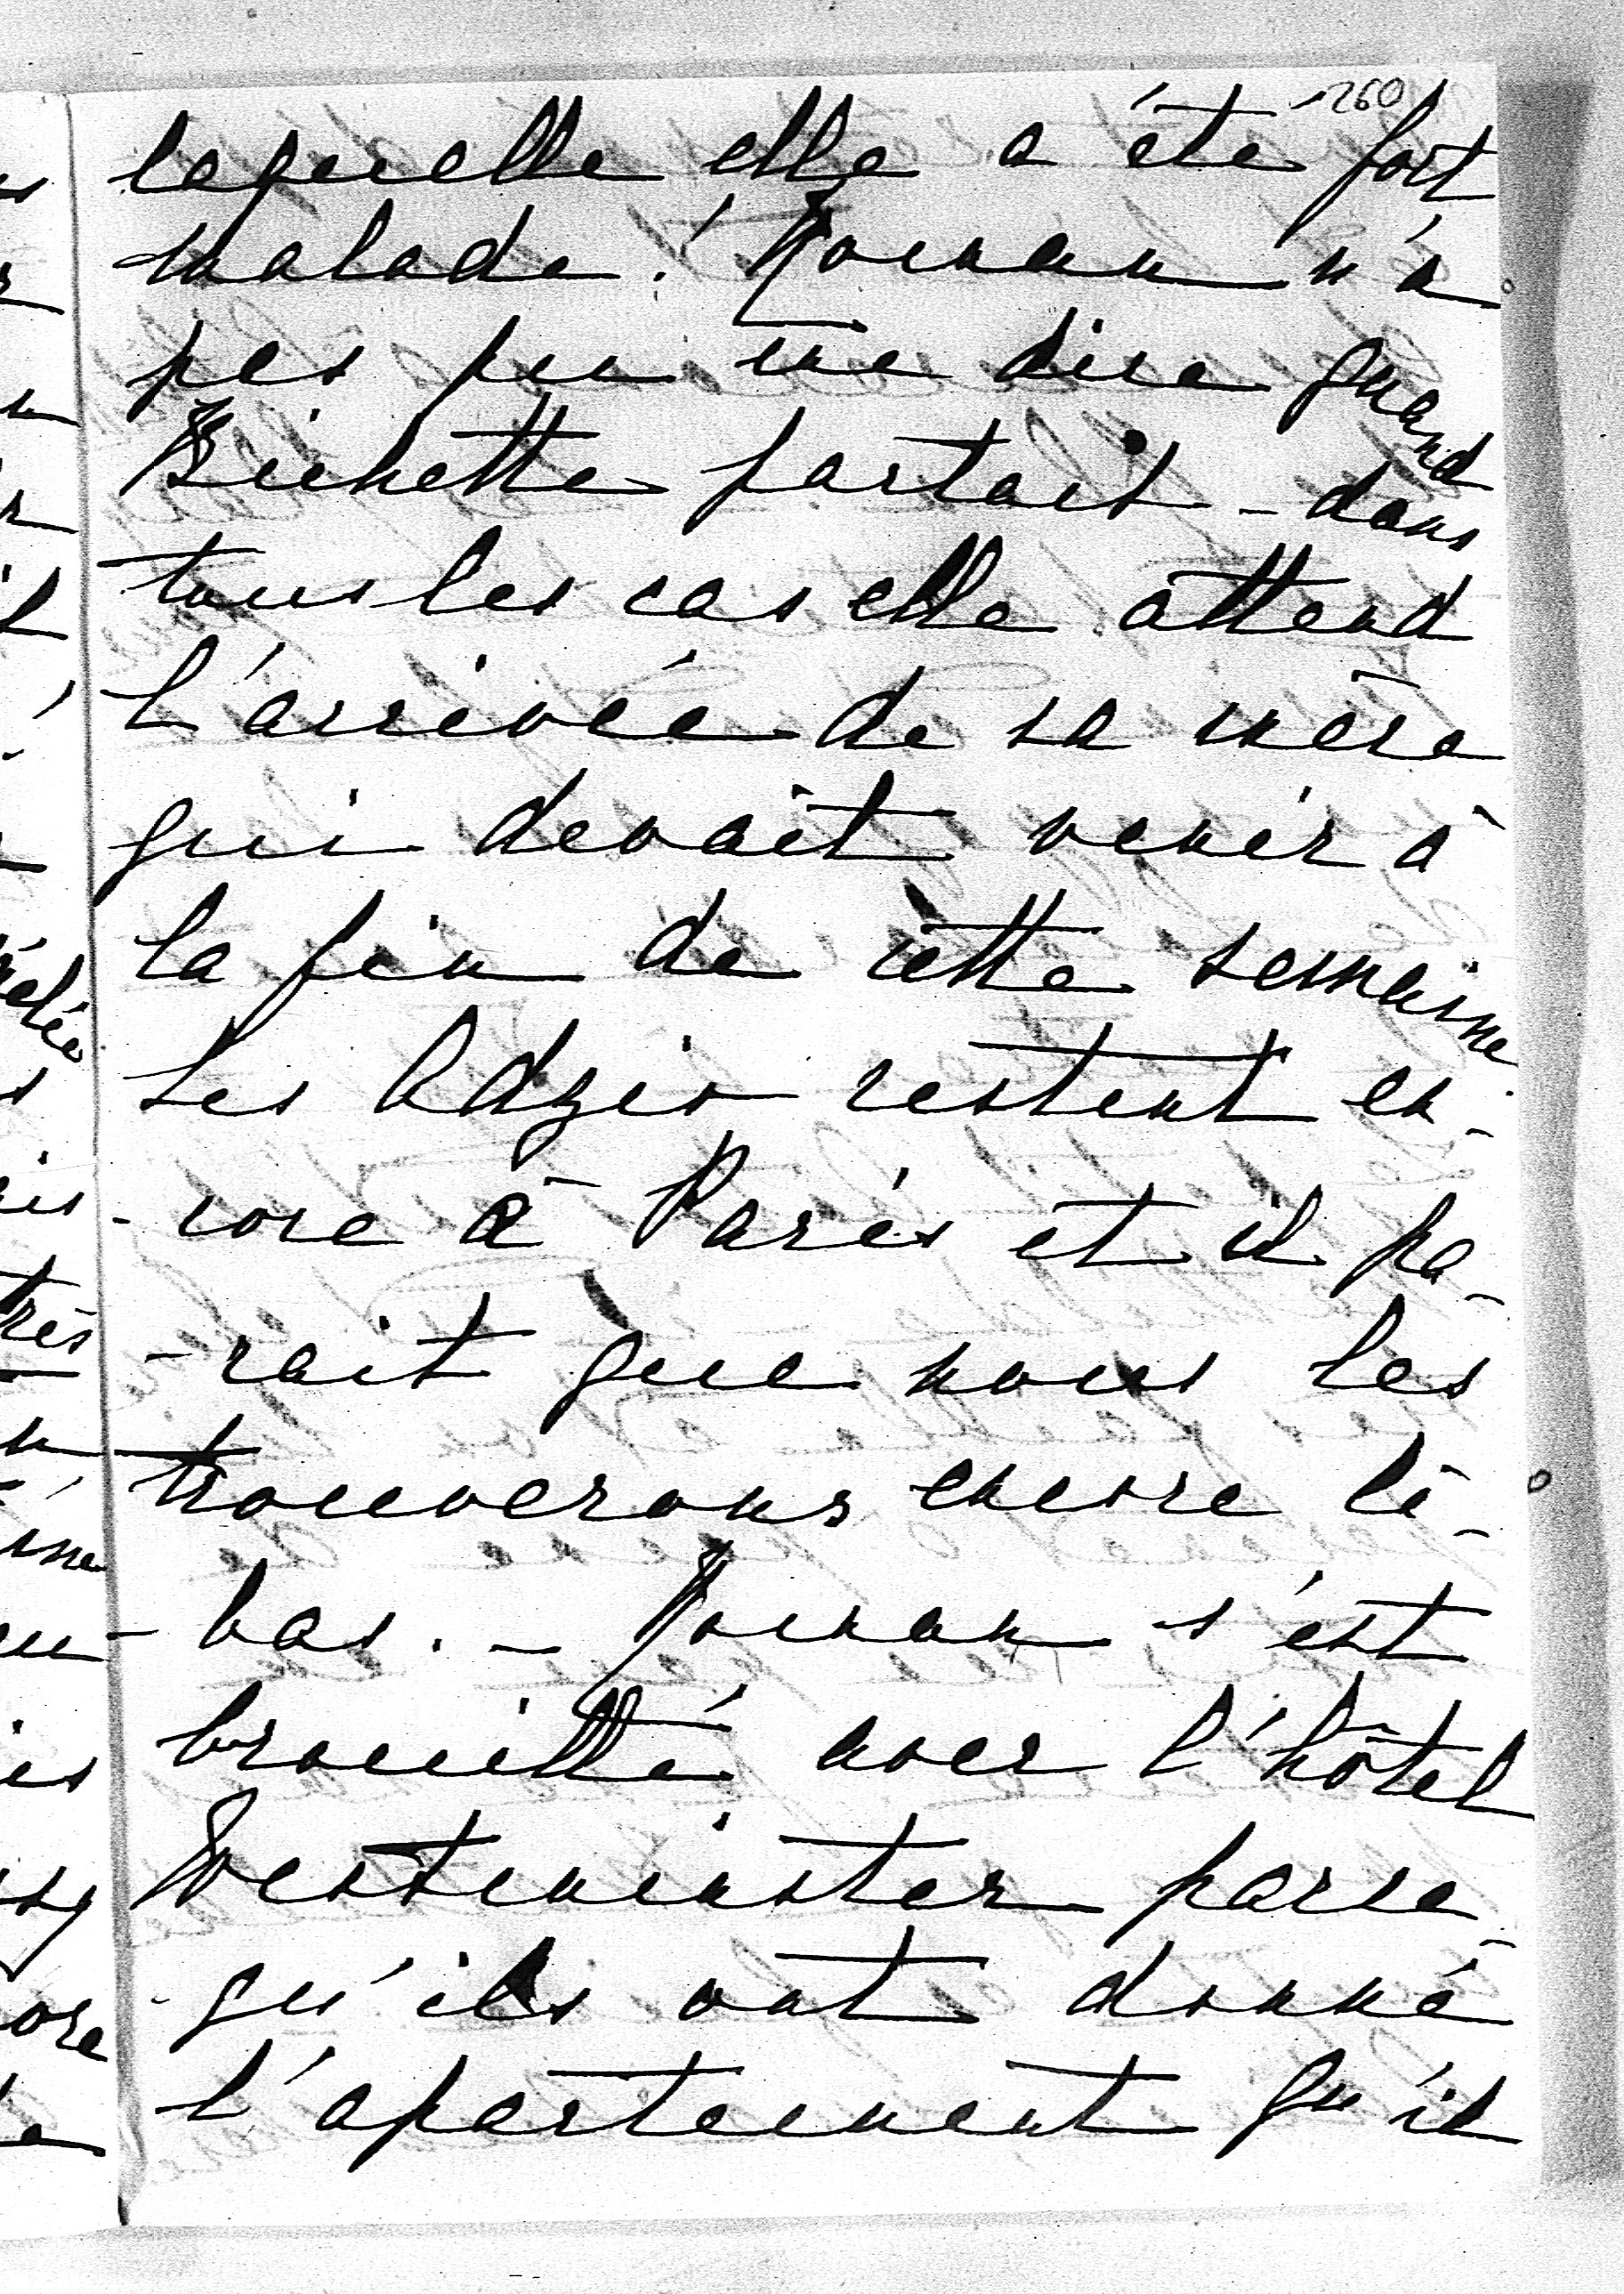 260
laquelle elle a été fort
malade! Noman n'a
pas pu me dire quand
Bichette partait - dans
tous les cas elle attend
l'arrivée de sa mère
qui devait venir à
la fin de cette semaine
Les Adzio restent en-
-core à Paris et il pa-
-rait que nous les
trouverons encore là-
-bas. - Noman s'est
brouillé avec l'hôtel
Westminster parce
qu'ils ont donné
l'apartement qu'il